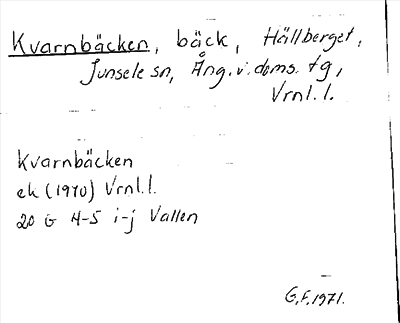 Kvarnbäcken, bäck, Hällberget,
Junsele sn, Ång.v.doms. tg,
Vrnl.l.
Kvarnbäcken
ek (1970) Vrnl.l.
20 G 4-5 i-j Vallen
G.F. 1971.